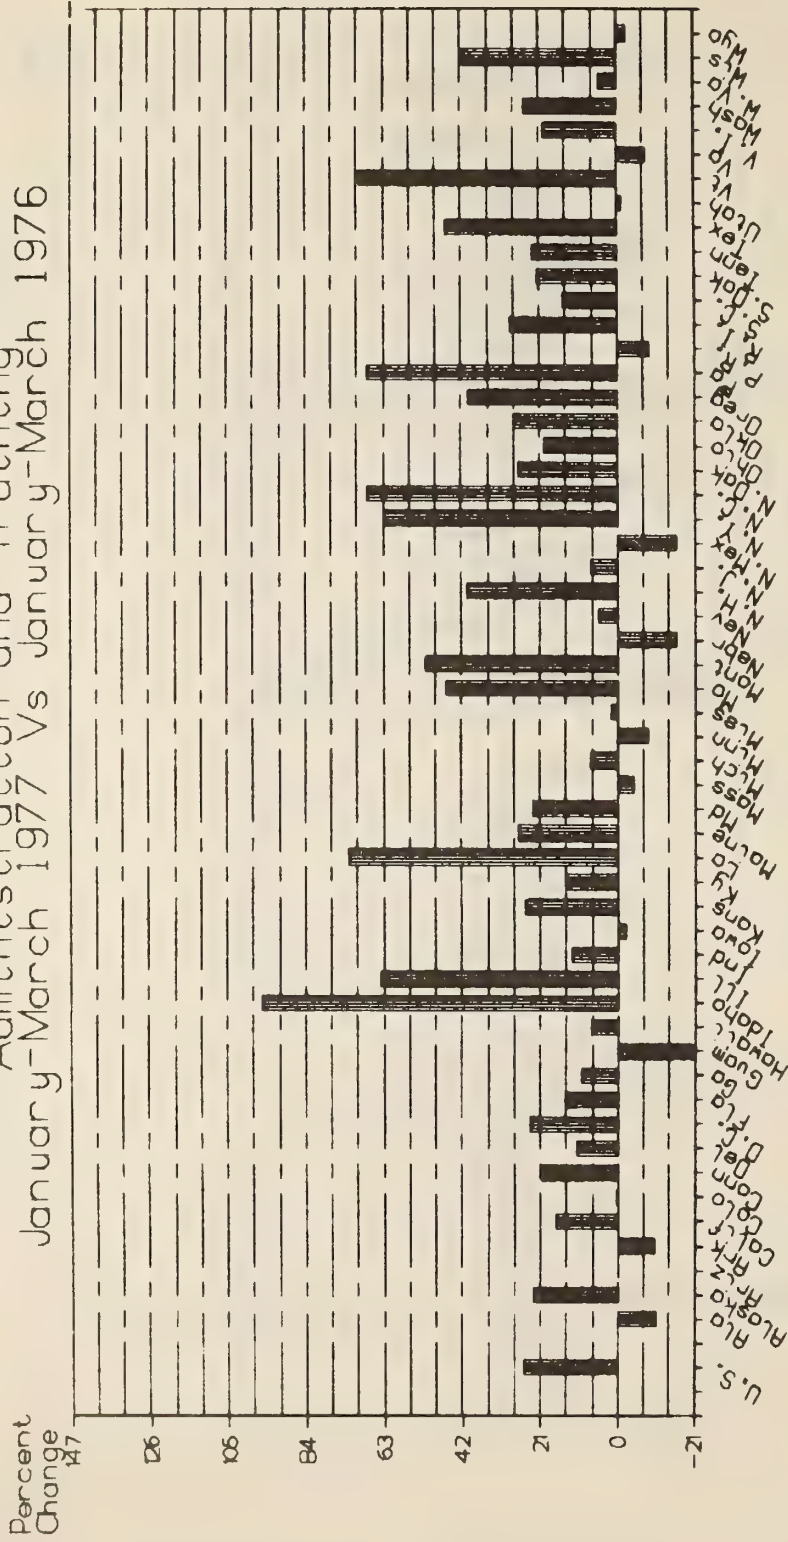 Administration and Training
January-March 1977 Vs January-March 1976
Percent
Change
147
126
105
84
63
42
21
0
-21
U.S.
Ala
Alaska
Ariz
Ark
Calif
Colo
Conn
Del
D.C.
Fla
Ga
Guam
Hawaii
Idaho
Ill
Ind
Iowa
Kans
Ky
La
Maine
Md
Mass
Mich
Minn
Miss
Mo
Mont
Nebr
Nev
N.H.
N.J.
N.Mex
N.Y.
N.C.
N.Dak
Ohio
Okla
Oreg
Pa
P.R.
R.I.
S.C.
S.Dak
Tenn
Tex
Utah
Vt
Va
V.I.
Wash
W.Va
Wis
Wyo